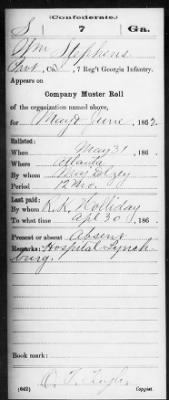 (Confederate.)
S 7 Ga.
Wm Stephens
Pvt, Co. , 7 Reg't Georgia Infantry.
Appears on
Company Muster Roll
of the organization named above,
for May & June, 1862.
Enlisted:
When May 31, 186 .
Where Atlanta
By whom
Period 12 Mo.
Last paid:
By whom R. K. Holliday
To what time Apl 30, 186 .
Present or absent Absent
Remarks: Hospital Lynch
burg.
Book mark:
(642) Copyist.